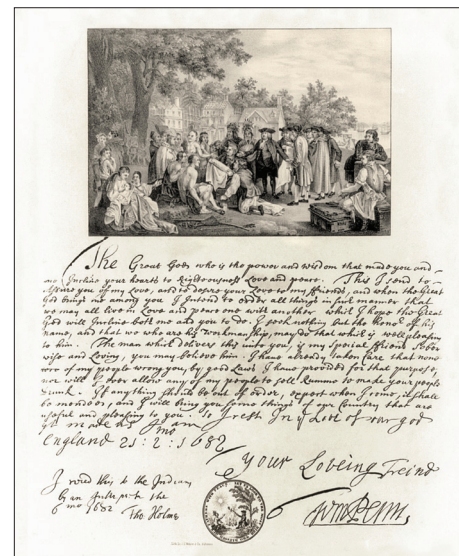 The Great God, who is the power and wisdom that made you and
me Incline your hearts to Righteousness Love and peace. This I send to
Assure you of my Love, and to desire your Love to my friends, and when the Great
God brings me among you I Intend to order all things in such manner that
we may all live in Love and peace one with another which I hope the Great
God will Incline both me and you to do. I seek nothing but the honor of his
name, and that we who are his workmanship, may do that which is well pleasing
to him. The man which delivers this unto you, is my Special friend Sober
wise and Loving, you may believe him. I have already taken care that none
of my people wrong you, by good Laws I have provided for that purpose,
nor will I ever allow any of my people to sell Rumme to make your people
Drunk. If any thing should be out of order, expect when I come, it shall
be mended, and I will bring you some things of our Country that are
useful and pleasing to you. So I rest In ye Love of our god
yt made us I am
England 21: 2: 1682
Your Loveing Freind
I read this to the Indians
by an Interpreter the
6 mo 1682 Tho Holme
Wm Penn